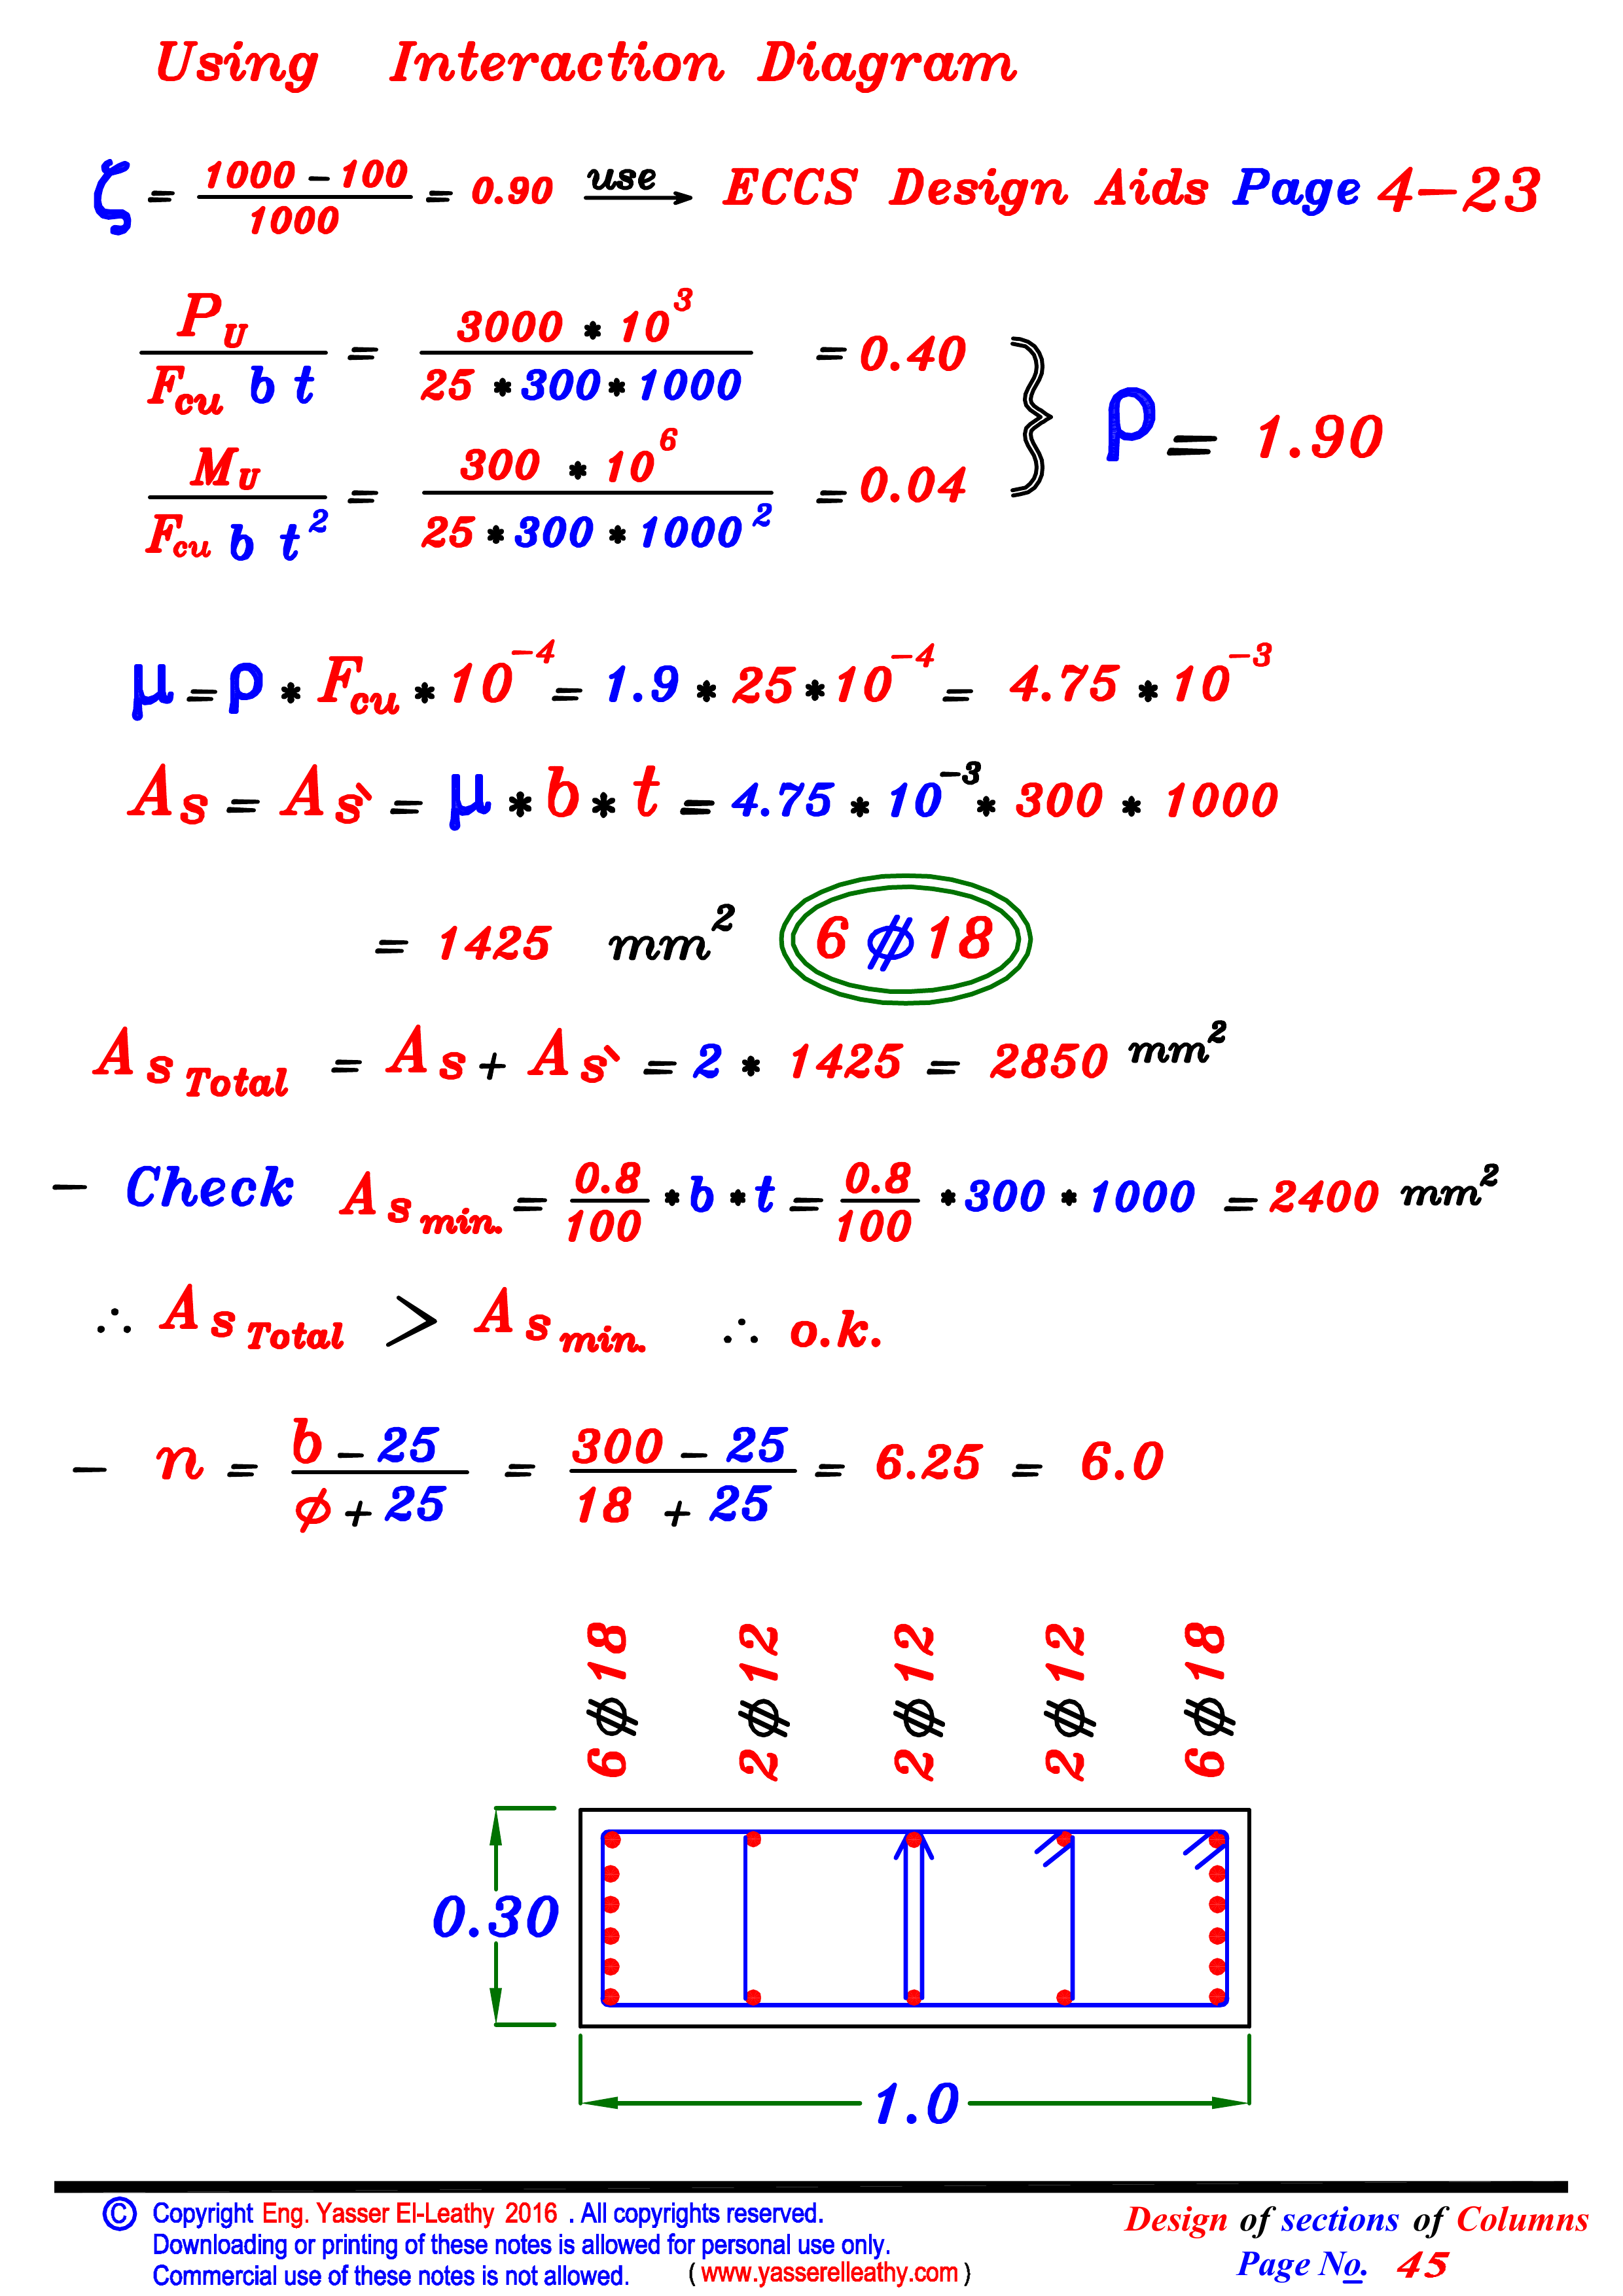 Using Interaction Diagram
ζ = (1000 - 100) / 1000 = 0.90 use → ECCS Design Aids Page 4-23
P_U / (F_cu b t) = (3000 * 10^3) / (25 * 300 * 1000) = 0.40
ρ = 1.90
M_U / (F_cu b t^2) = (300 * 10^6) / (25 * 300 * 1000^2) = 0.04
μ = ρ * F_cu * 10^-4 = 1.9 * 25 * 10^-4 = 4.75 * 10^-3
As = As` = μ * b * t = 4.75 * 10^-3 * 300 * 1000
= 1425 mm^2 6 ⌀ 18
As Total = As + As` = 2 * 1425 = 2850 mm^2
- Check As min. = 0.8/100 * b * t = 0.8/100 * 300 * 1000 = 2400 mm^2
∴ As Total > As min. ∴ o.k.
- n = (b - 25) / (ϕ + 25) = (300 - 25) / (18 + 25) = 6.25 = 6.0
6⌀18 2⌀12 2⌀12 2⌀12 6⌀18
0.30
1.0
© Copyright Eng. Yasser El-Leathy 2016 . All copyrights reserved.
Downloading or printing of these notes is allowed for personal use only.
Commercial use of these notes is not allowed. ( www.yasserelleathy.com )
Design of sections of Columns
Page No. 45